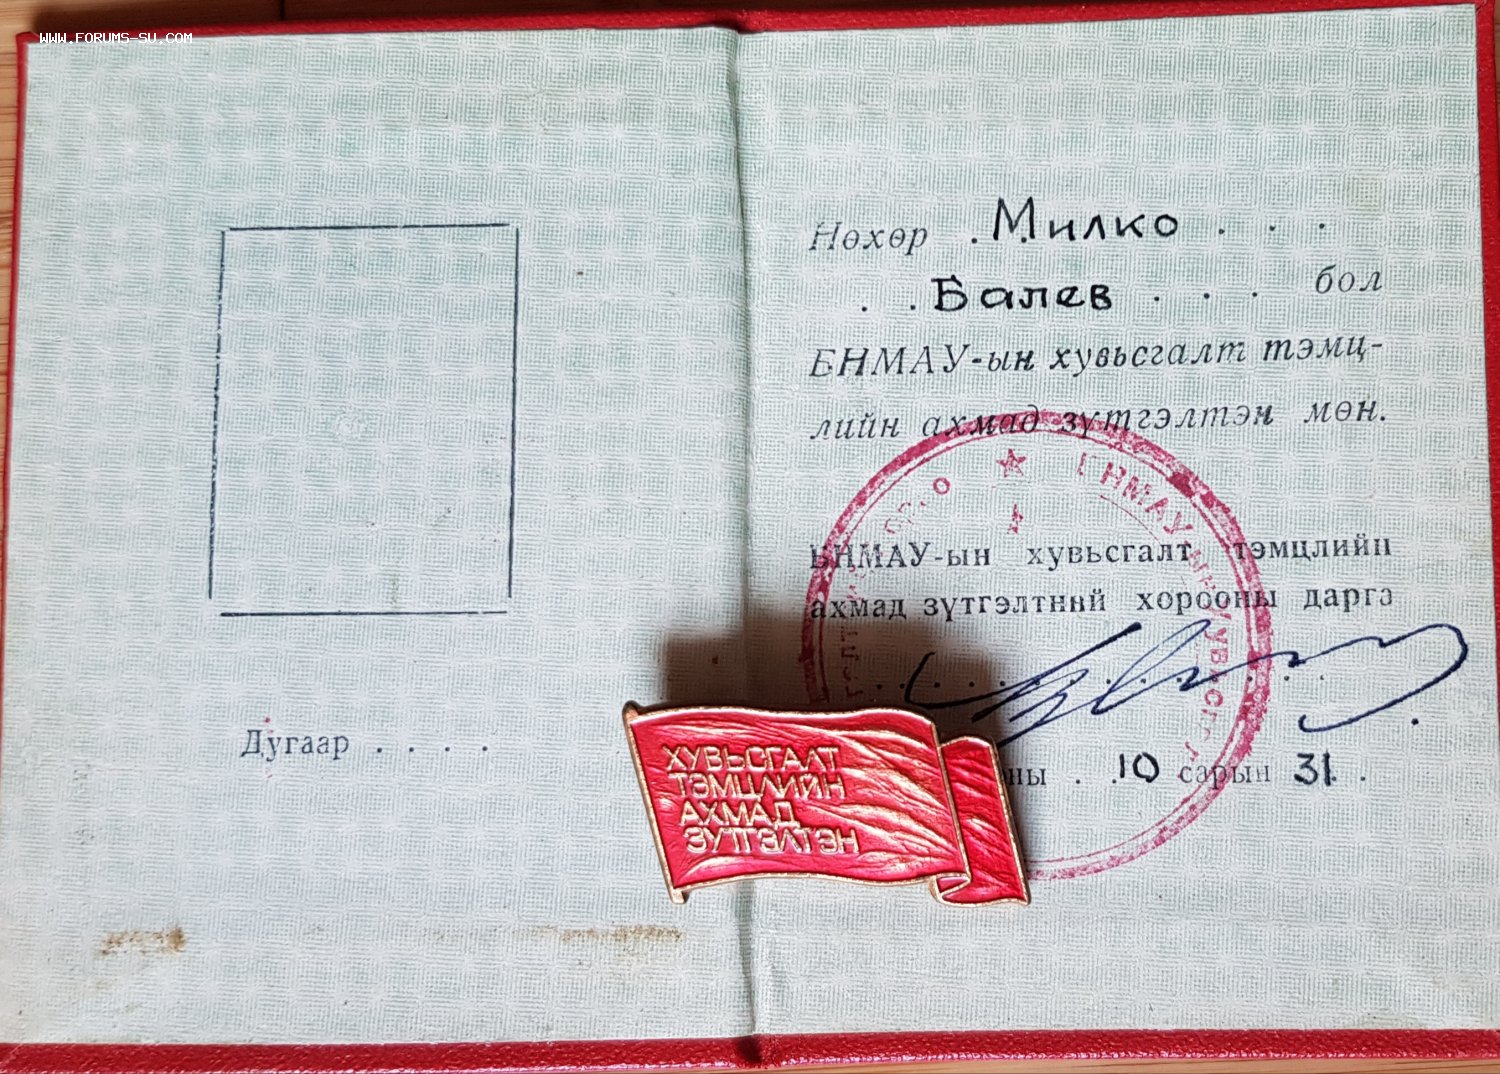 WWW.FORUMS-SU.COM
Дугаар . . . .
Нөхөр . Милко . . .
. . Балев . . . бол
БНМАУ-ын хувьсгалт тэмц-
лийн ахмад зүтгэлтэн мөн.
БНМАУ-ын хувьсгалт тэмцлийн
ахмад зүтгэлтний хорооны дарга
ны . . 10 сарын 31 .
БНМАУ-ын
ХУВЬСГАЛТ
ТЭМЦЛИЙН
АХМАД
ЗҮТГЭЛТЭН